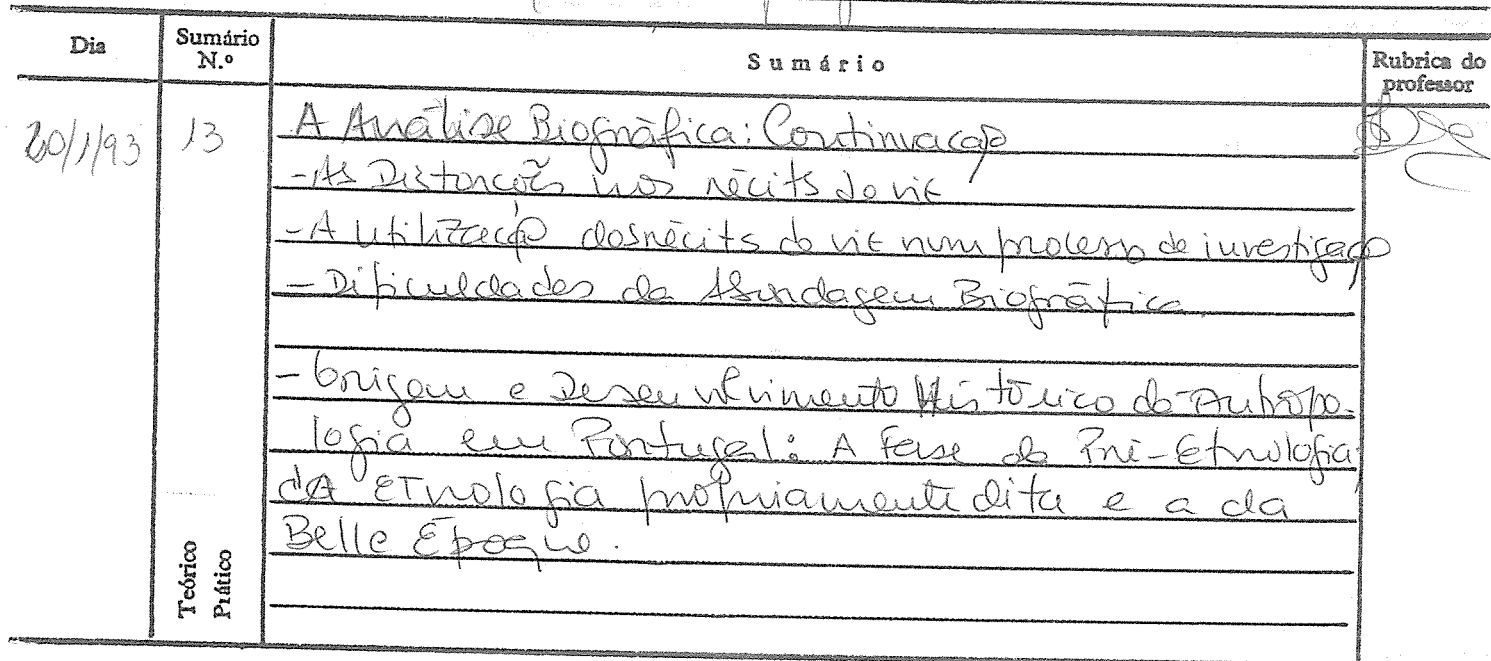 Dia
Sumário N.º
Sumário
Rubrica do professor
20/1/93
13
A Análise Biográfica: Continuação
- As Distorções nos récits de vie
- A utilização dos récits de vie num processo de investigação
- Dificuldades da Abordagem Biográfica.
- Origem e Desenvolvimento Histórico da Antropo-
logia em Portugal: A Fase da Pré-Etnologia,
da Etnologia propriamente dita e a da
Belle Époque.
Teórico
Prático